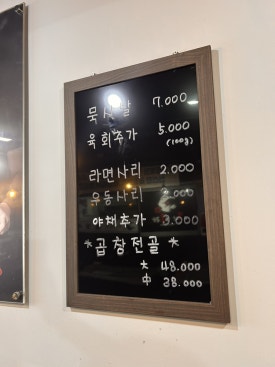 묵사발 7.000
육회추가 5.000
(100g)
라면사리 2.000
우동사리 2.000
야채추가 3.000
*곱창전골*
大 48.000
中 38.000